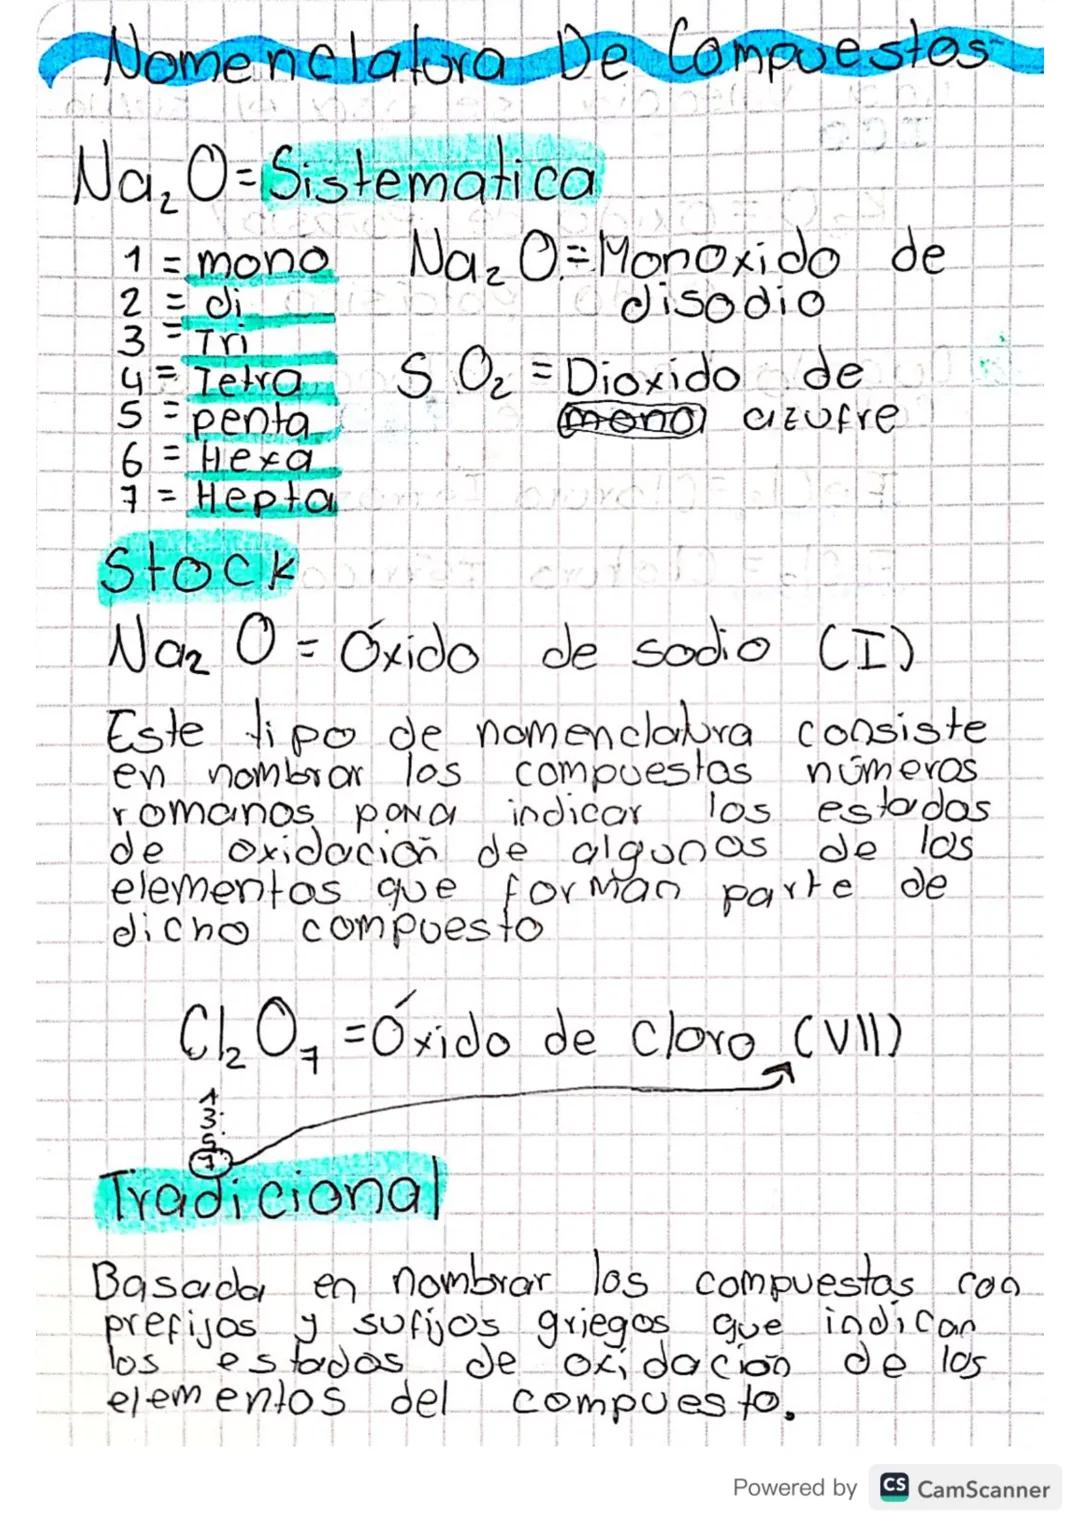 Nomenclatura De Compuestos
Na₂O=Sistematica
1 = mono
2 = di
3 = Tri
4 = Tetra
5 = penta
6 = Hexa
7 = Hepta
Na₂O=Monoxido de
disodio
SO₂ = Dioxido de
mono azufre
Stock
Na₂O = Óxido de sodio (I)
Este tipo de nomenclatura consiste
en nombrar los compuestos números
romanos para indicar los estados
de oxidación de algunos de los
elementos que forman parte de
dicho compuesto
Cl₂O₇ =Óxido de Cloro (VII)
1
3
5
7
Tradicional
Basada en nombrar los compuestos con
prefijos y sufijos griegos que indican
los estados de oxidación de los
elementos del compuesto.
Powered by CS CamScanner